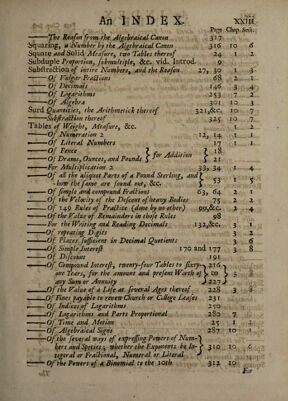 An INDEX. XXIII
Page Chap. Sect.
—The Reason from the Algebraical Canon 317
Squaring, a Number by the Algebraical Canon 316 10 6
Square and Solid Measure, two Tables thereof 24 1 2
Subduple Proportion, submultiple, &c. vid. Introd. 9
Substraction of intire Numbers, and the Reason 27, 30 1 3
—Of Vulgar Fractions 68 2 1
—Of Decimals 146 3 4
—Of Logarithms 253 7 2
—Of Algebra 301 10 3
Surd Quantities, the Arithmetick thereof 321,&c. 10 7
—Substraction thereof 325 10 7
Tables of Weight, Measure, &c. 1 2
—Of Numeration 2 12, 14 1 1
—Of Literal Numbers 17 1 1
—Of Pence } for Addition { 18
—Of Drams, Ounces, and Pounds 21
—For Multiplication 2 33, 34 1 4
—Of all the aliquot Parts of a Pound Sterling, and
how the same are found out, &c. } 53 1 5
—Of simple and compound Fractions 63, 64 2 1
—Of the Velocity of the Descent of heavy Bodies 75 2 2
—Of 149 Rules of Practice (done by no other) 99,&c. 2 4
—Of the Value of Remainders in those Rules 98
—For the Writing and Reading Decimals 132,&c. 3 1
—Of repeating Digits 3 2
—Of Places sufficient in Decimal Quotients 3 6
—Of Simple Interest 170 and 177 3 8
—Of Discount 191
—Of Compound Interest, twenty-four Tables to sixty-
one Years, for the amount and present Worth of
any Sum or Annuity } 216 to 227
—Of the Value of a Life at several Ages thereof 228 3
—Of Fines payable to renew Church or College Leases 231
—Of Indices of Logarithms 250
—Of Logarithms and Parts Proportional 280 7
—Of Time and Motion 25 1 2
—Of Algebraical Signs 287 10 1
—Of the several ways of expressing Powers of Num-
bers and Species; whether the Exponents be In-
tegeral or Fractional, Numeral or Literal } 310 10 6
—Of the Powers of a Binomial to the 10th 312 10
For